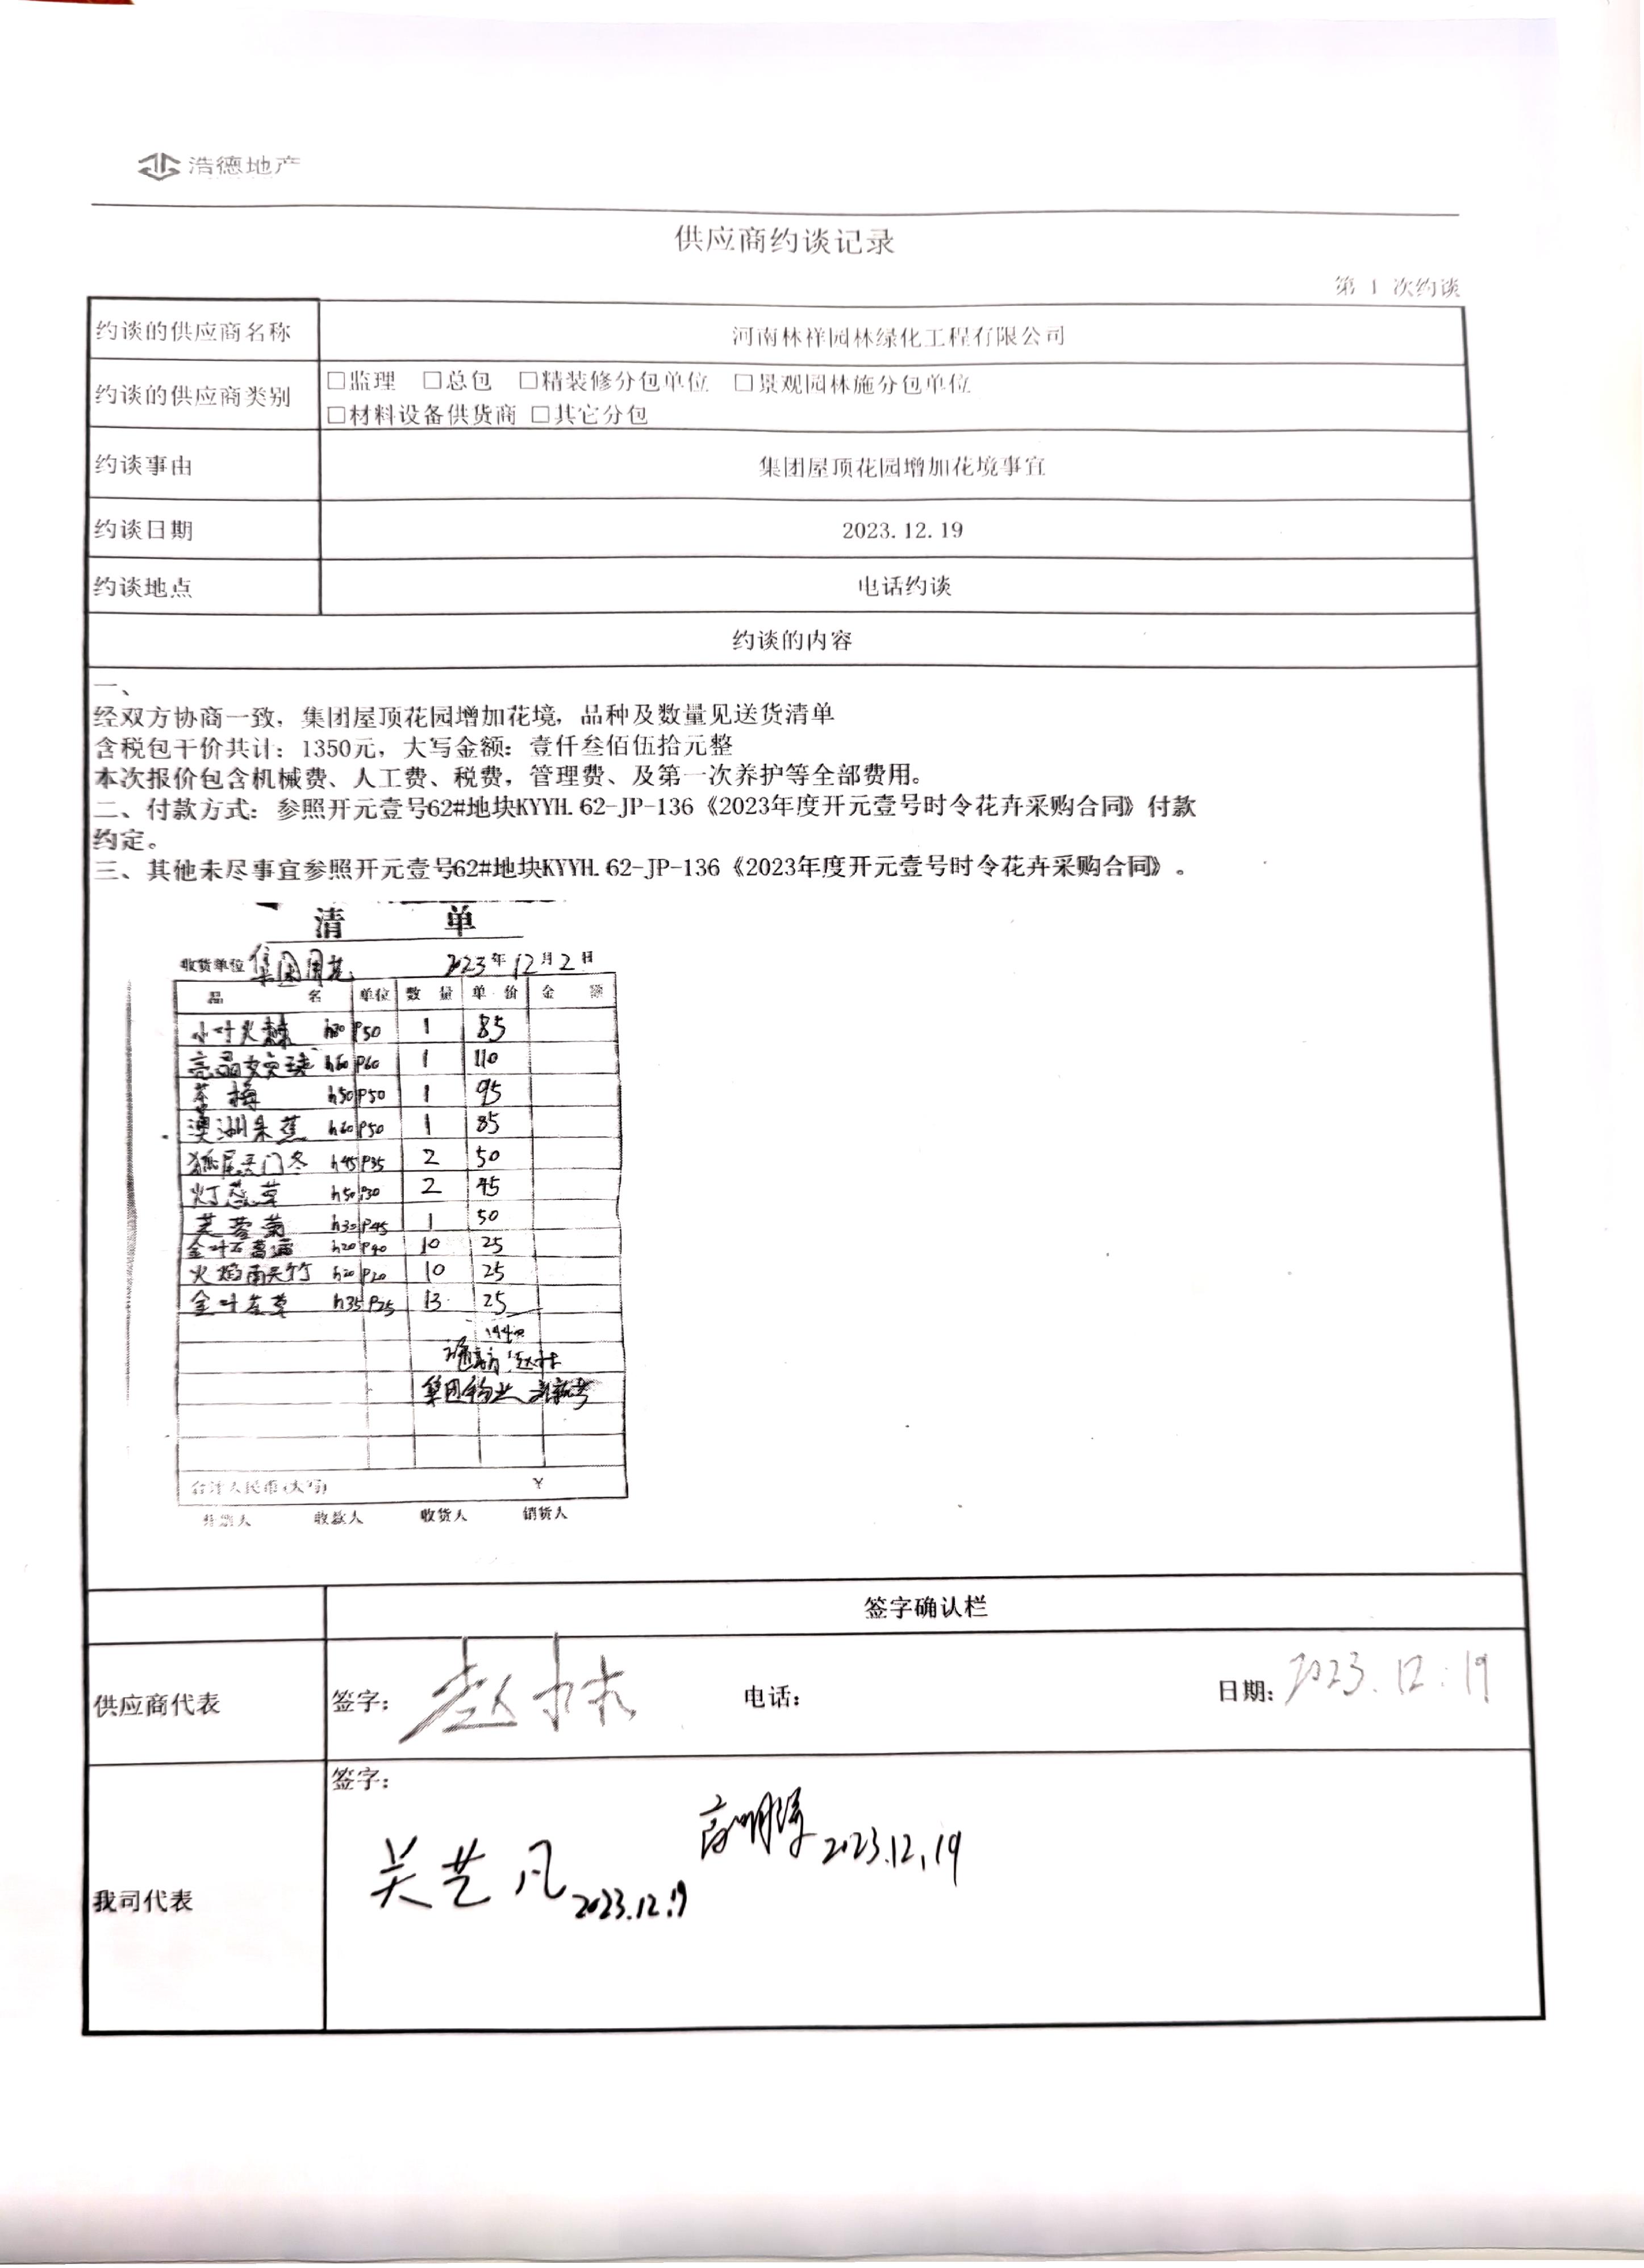 浩德地产
供应商约谈记录
第 1 次约谈
约谈的供应商名称 河南林祥园林绿化工程有限公司
约谈的供应商类别 □监理 □总包 □精装修分包单位 □景观园林施分包单位
□材料设备供货商 □其它分包
约谈事由 集团屋顶花园增加花境事宜
约谈日期 2023.12.19
约谈地点 电话约谈
约谈的内容
一、
经双方协商一致，集团屋顶花园增加花境，品种及数量见送货清单
含税包干价共计：1350元，大写金额：壹仟叁佰伍拾元整
本次报价包含机械费、人工费、税费，管理费、及第一次养护等全部费用。
二、付款方式：参照开元壹号62#地块KYYH.62-JP-136《2023年度开元壹号时令花卉采购合同》付款
约定。
三、其他未尽事宜参照开元壹号62#地块KYYH.62-JP-136《2023年度开元壹号时令花卉采购合同》。
清 单
收货单位 集团 2023年12月2日
品 名 单位 数 量 单 价 金 额
小叶火棘 h30 P50 1 85
亮晶女贞球 h60 P60 1 110
茶梅 h50 P50 1 95
澳洲朱蕉 h60 P50 1 85
狐尾天门冬 h45 P35 2 50
灯芯草 h50 P30 2 45
芙蓉菊 h35 P45 1 50
金叶石菖蒲 h20 P40 10 25
火焰南天竹 h20 P20 10 25
金叶苔草 h35 P25 13 25
赵林
集团物业
合计人民币(大写) ¥
开票人 收款人 收货人 销货人
签字确认栏
供应商代表 签字： 赵林 电话： 日期： 2023.12.19
我司代表 签字：
高明 2023.12.19
吴艺凡 2023.12.19